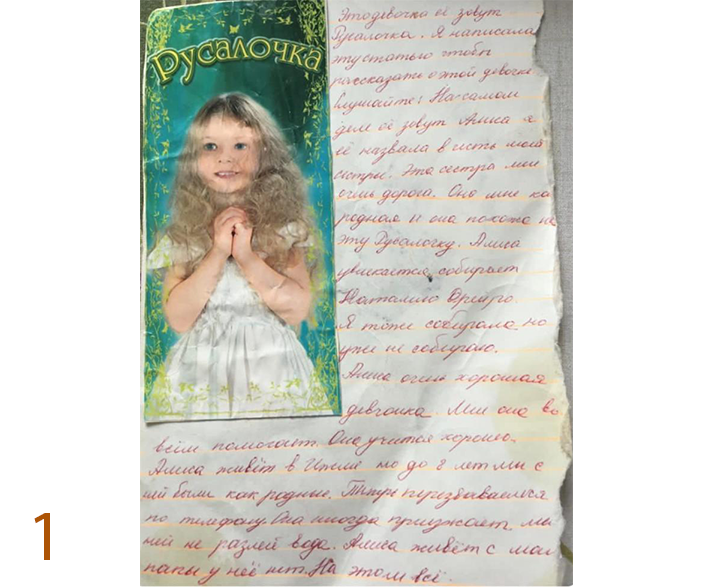 Русалочка
Это девочка её зовут
Русалочка. Я написала
эту статью чтобы
рассказать о этой девочке
Слушайте! На самом
деле её зовут Алиса я
её назвала в честь моей
сестры. Эта сестра мне
очень дорога. Она мне ка
родная и она похожа на
эту Русалочку. Алиса
увлекается собирает
Наталию Орейро.
Я тоже собирала но
уже не собираю.
Алиса очень хорошая
девчонка. Мне она во
всём помогает. Она учится хорошо.
Алиса живёт в но до 8 лет мы с
ней были как родные. Теперь перезваниваемся
по телефону. Она иногда приезжает. мы
ней не разлей вода. Алиса живёт с мам
папы у неё нет. На этом всё.
1